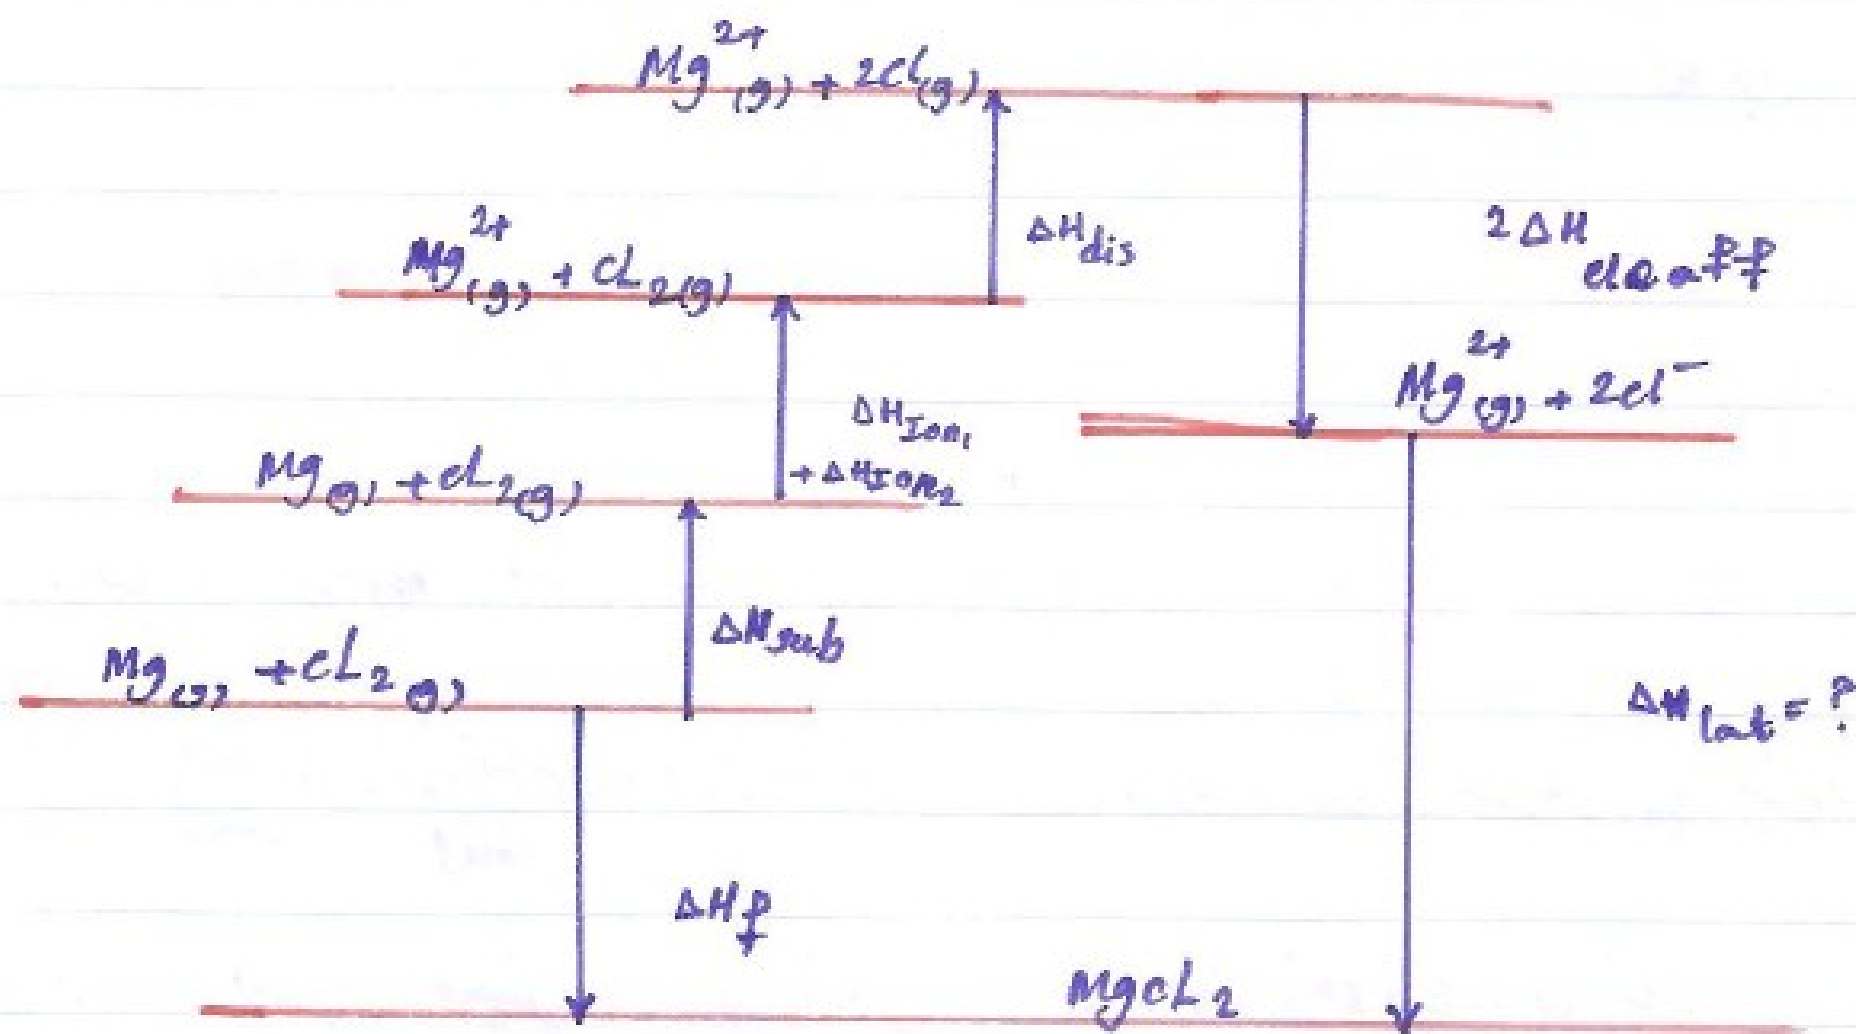 Mg²⁺(g) + 2Cl(g)
ΔHdis
2ΔH eleaff
Mg²⁺(g) + CL₂(g)
Mg²⁺(g) + 2cl⁻
ΔHIon₁
+ ΔHIon₂
Mg(g) + cL₂(g)
ΔHsub
Mg(s) + cL₂(g)
ΔHlat = ?
ΔHf
MgcL₂